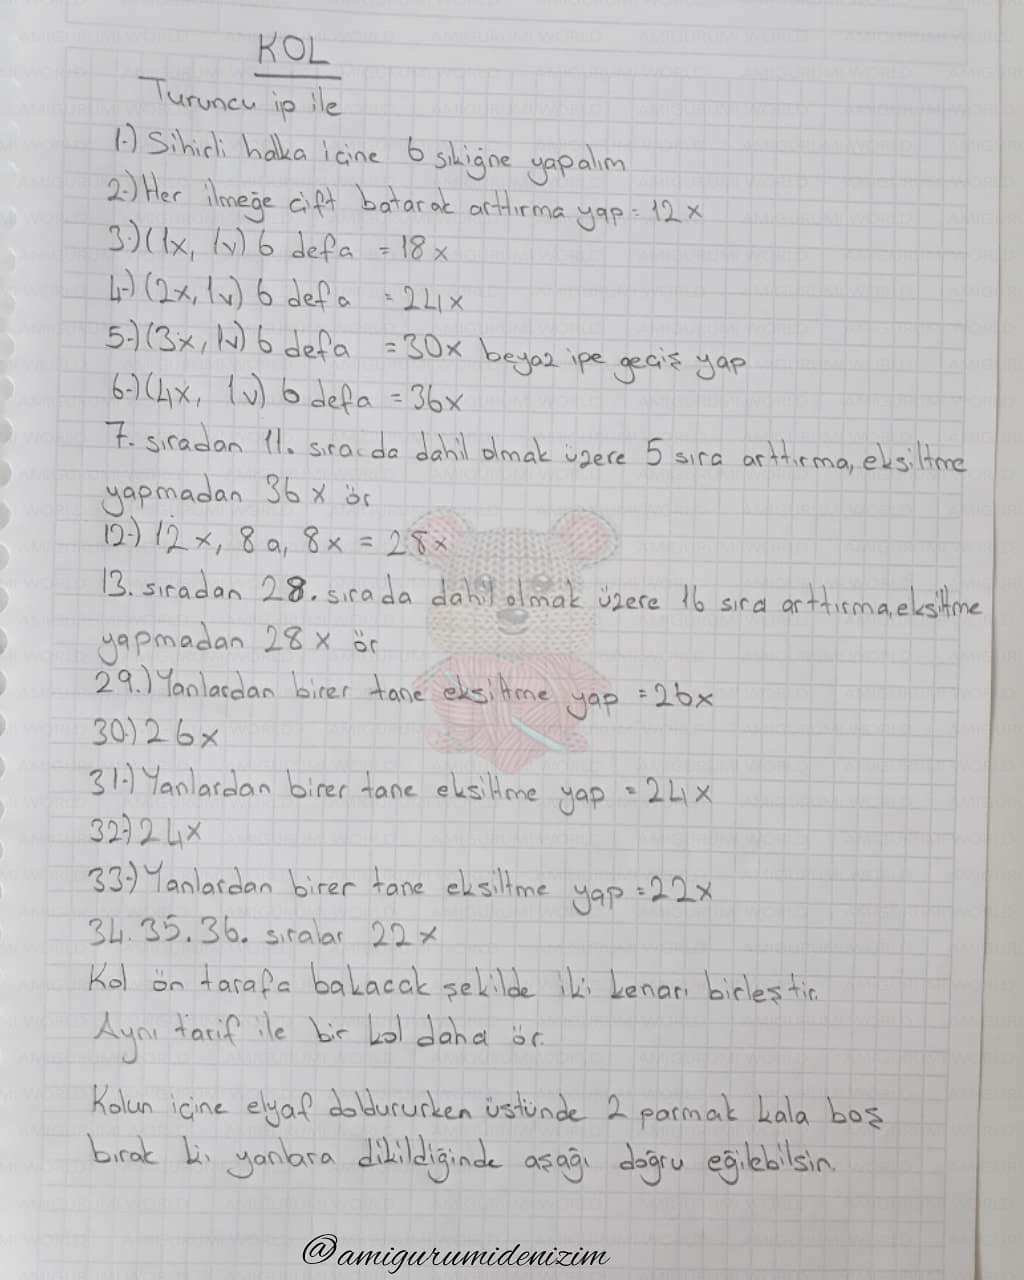 KOL
Turuncu ip ile
1-) Sihirli halka içine 6 sıkiğne yapalım
2-) Her ilmeğe çift batarak arttırma yap = 12x
3-) (1x, 1v) 6 defa = 18x
4-) (2x, 1v) 6 defa = 24x
5-) (3x, 1v) 6 defa = 30x beyaz ipe geçiş yap
6-) (4x, 1v) 6 defa = 36x
7. sıradan 11. sırada dahil olmak üzere 5 sıra arttırma, eksiltme
yapmadan 36x ör
12-) 12x, 8a, 8x = 28x
13. sıradan 28. sırada dahil olmak üzere 16 sıra arttırma, eksiltme
yapmadan 28x ör
29.) Yanlardan birer tane eksiltme yap = 26x
30-) 26x
31-) Yanlardan birer tane eksiltme yap = 24x
32-) 24x
33-) Yanlardan birer tane eksiltme yap = 22x
34. 35. 36. sıralar 22x
Kol ön tarafa bakacak şekilde iki kenarı birleştir.
Aynı tarif ile bir kol daha ör.
Kolun içine elyaf doldururken üstünde 2 parmak kala boş
bırak ki yanlara dikildiğinde aşağı doğru eğilebilsin.
@amigurumidenizim